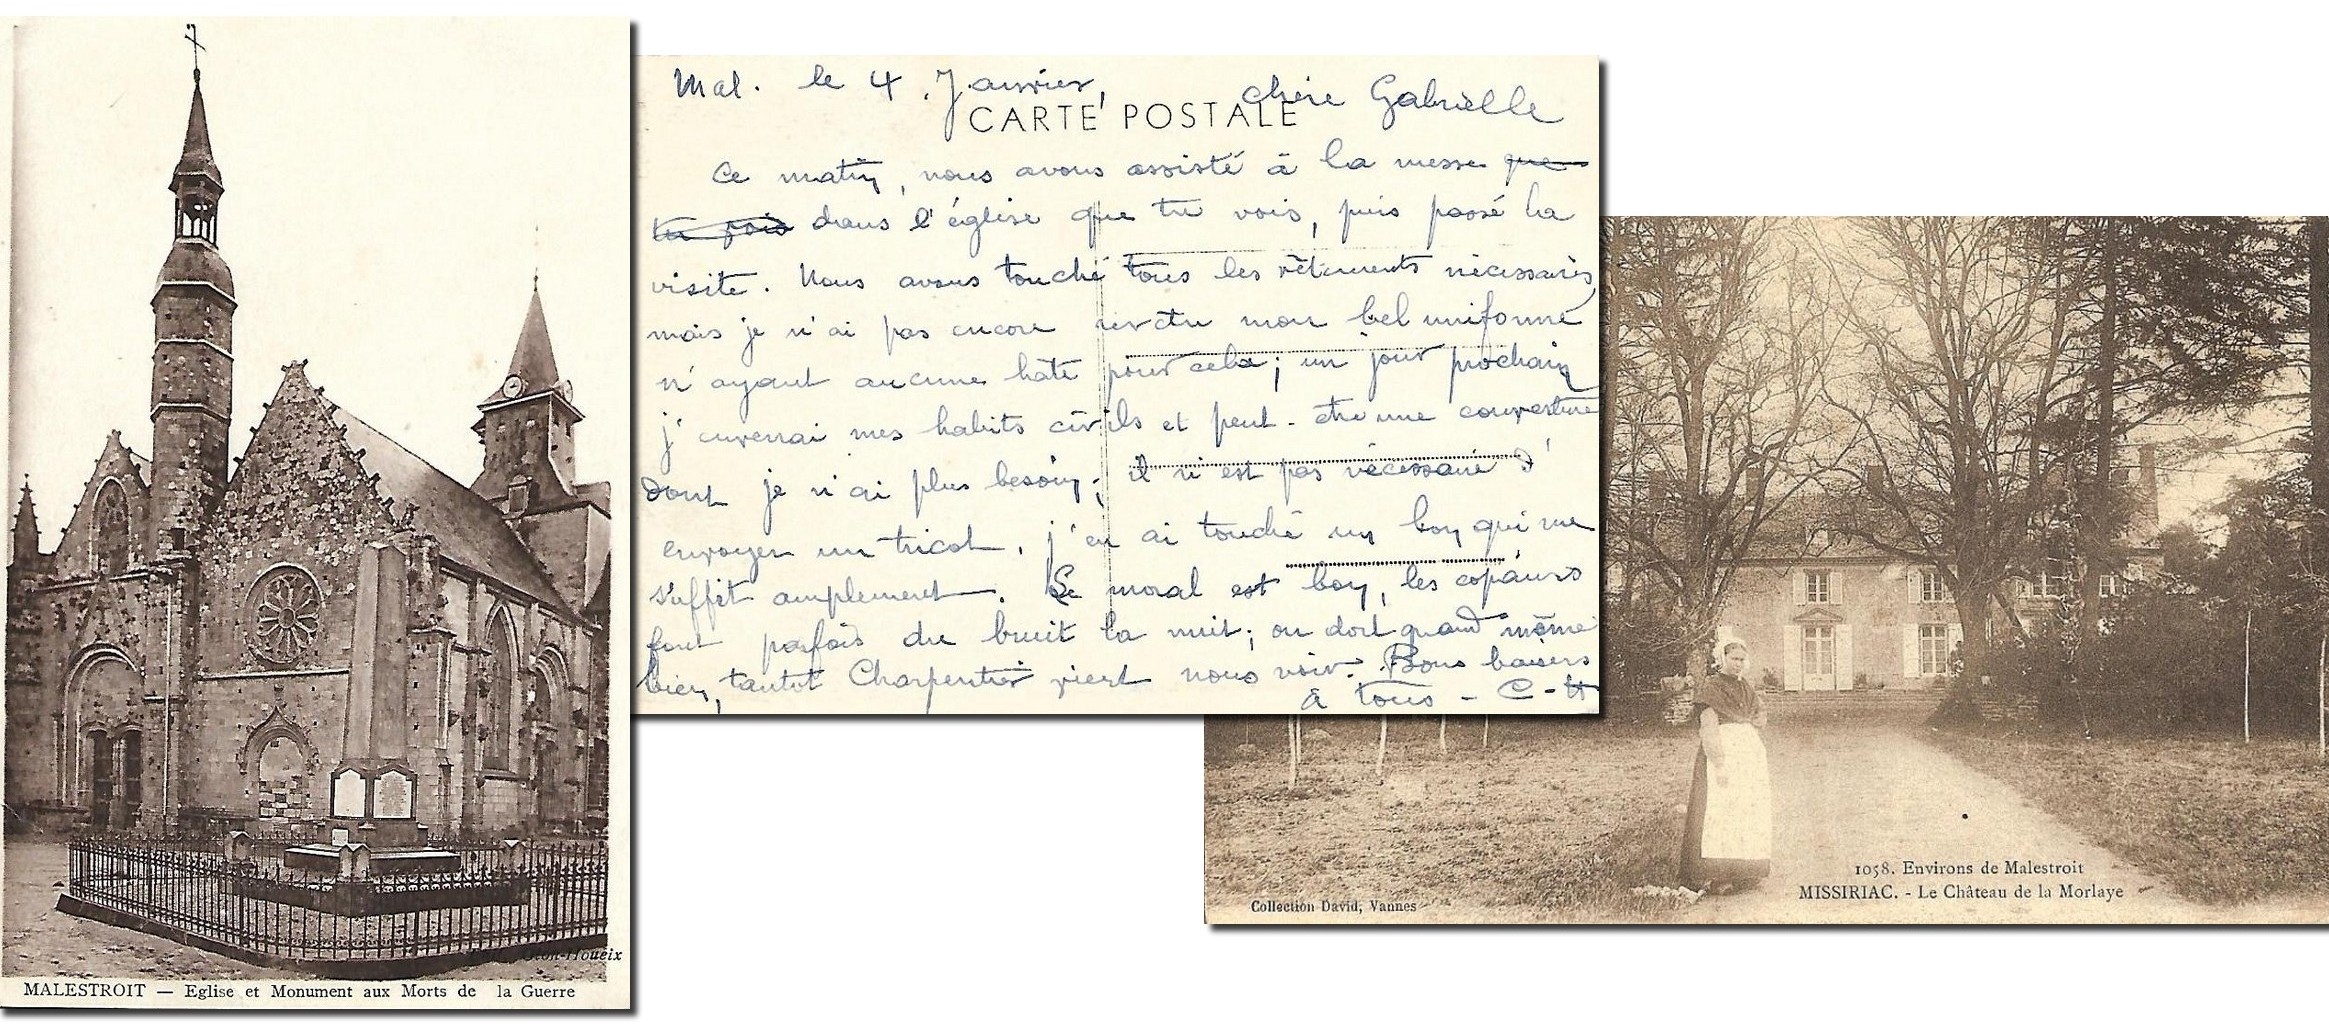 MALESTROIT — Eglise et Monument aux Morts de la Guerre
Mal. le 4 Janvier, chère Gabrielle
CARTE POSTALE
Ce matin, nous avons assisté à la messe que
tu vois dans l'église que tu vois, puis passé la
visite. Nous avons touché tous les vêtements nécessaires,
mais je n'ai pas encore revêtu mon bel uniforme
n'ayant aucune hâte pour cela; un jour prochain
j'enverrai mes habits civils et peut-etre une couverture
dont je n'ai plus besoin; il n'est pas nécessaire d'
envoyer un tricot, j'en ai touché un bon qui me
suffit amplement. Le moral est bon, les copains
font parfois du bruit la nuit; on dort quand même
bien, tantot Charpentier vient nous voir. Bons baisers
à tous - C-H
1058. Environs de Malestroit
MISSIRIAC. - Le Château de la Morlaye
Collection David, Vannes